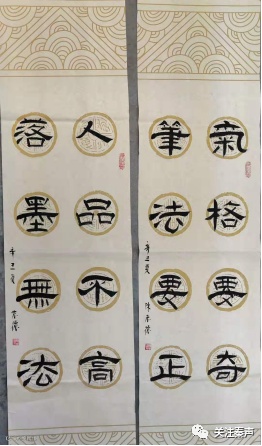 氣格要奇
筆法要正
辛丑夏
人品不高
落墨無法
辛丑夏
关注秦声